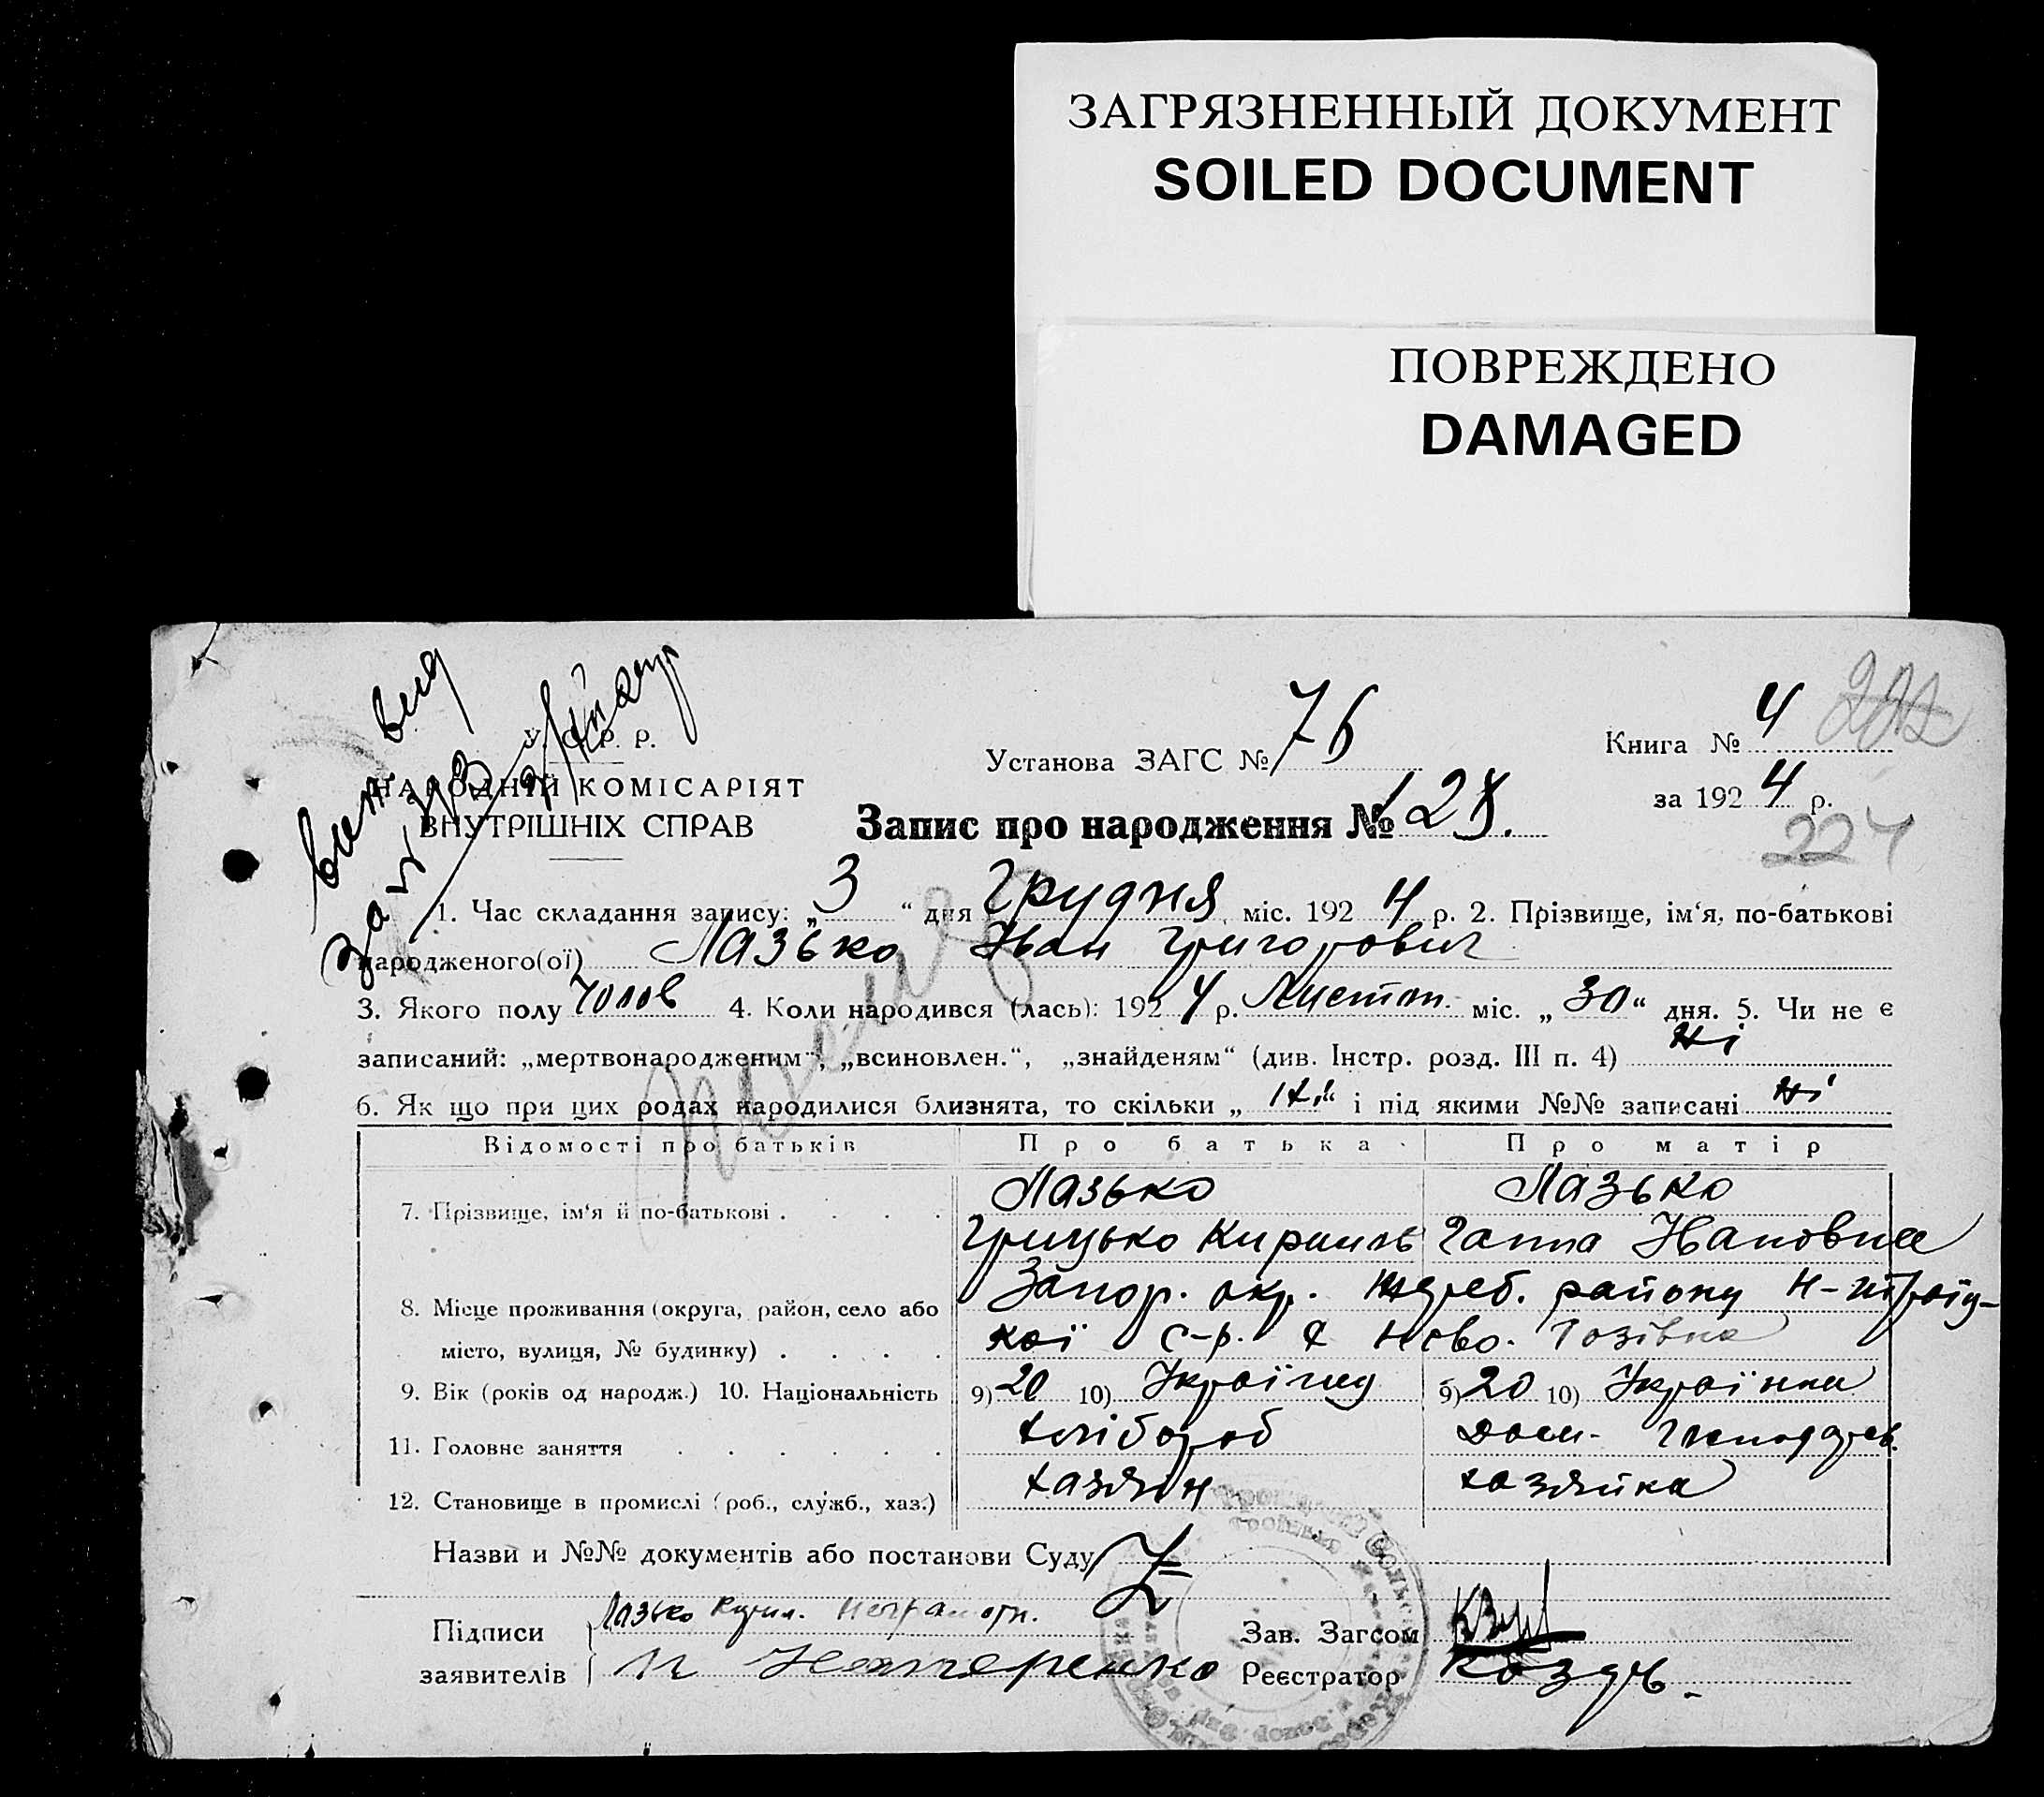 ЗАГРЯЗНЕННЫЙ ДОКУМЕНТ
SOILED DOCUMENT
ПОВРЕЖДЕНО
DAMAGED
У. С. Р. Р.
НАРОДНІЙ КОМІСАРІЯТ
ВНУТРІШНІХ СПРАВ
Установа ЗАГС № 76
Книга № 4 222
за 1924 р.
224
Запис про народження № 128.
1. Час складання запису: „3“ дня Грудня міс. 1924 р. 2. Прізвище, ім‘я, по-батькові
народженого(ої) Лазько Іван Григорович
3. Якого полу Чолов 4. Коли народився (лась): 1924 р. Листоп. міс. „30“ дня. 5. Чи не є
записаний: „мертвонародженим“, „всиновлен.“, „знайденям“ (див. Інстр. розд. III п. 4) Ні
6. Як що при цих родах народилися близнята, то скільки „Ні“ і під якими №№ записані Ні
Відомості про батьків Про батька Про матір
7. Прізвище, ім‘я й по-батькові . . . . Лазько Лазько
Грицько Кирилів Ганна Івановна
8. Місце проживання (округа, район, село або Запор. окр. району
місто, вулиця, № будинку) . . . . кої с-р. Ново-
9. Вік (років од народж.) 10. Національність 9) 20 10) Українец 9) 20 10) Українка
11. Головне заняття . . . . . . хлібороб дом. господар.
12. Становище в промислі (роб., служб., хаз.) хазяїн хозяйка
Назви и №№ документів або постанови Суду
Підписи Лазько Кирил. Неграмотн.
заявителів Нестеренко
Зав. Загсом
Реєстратор